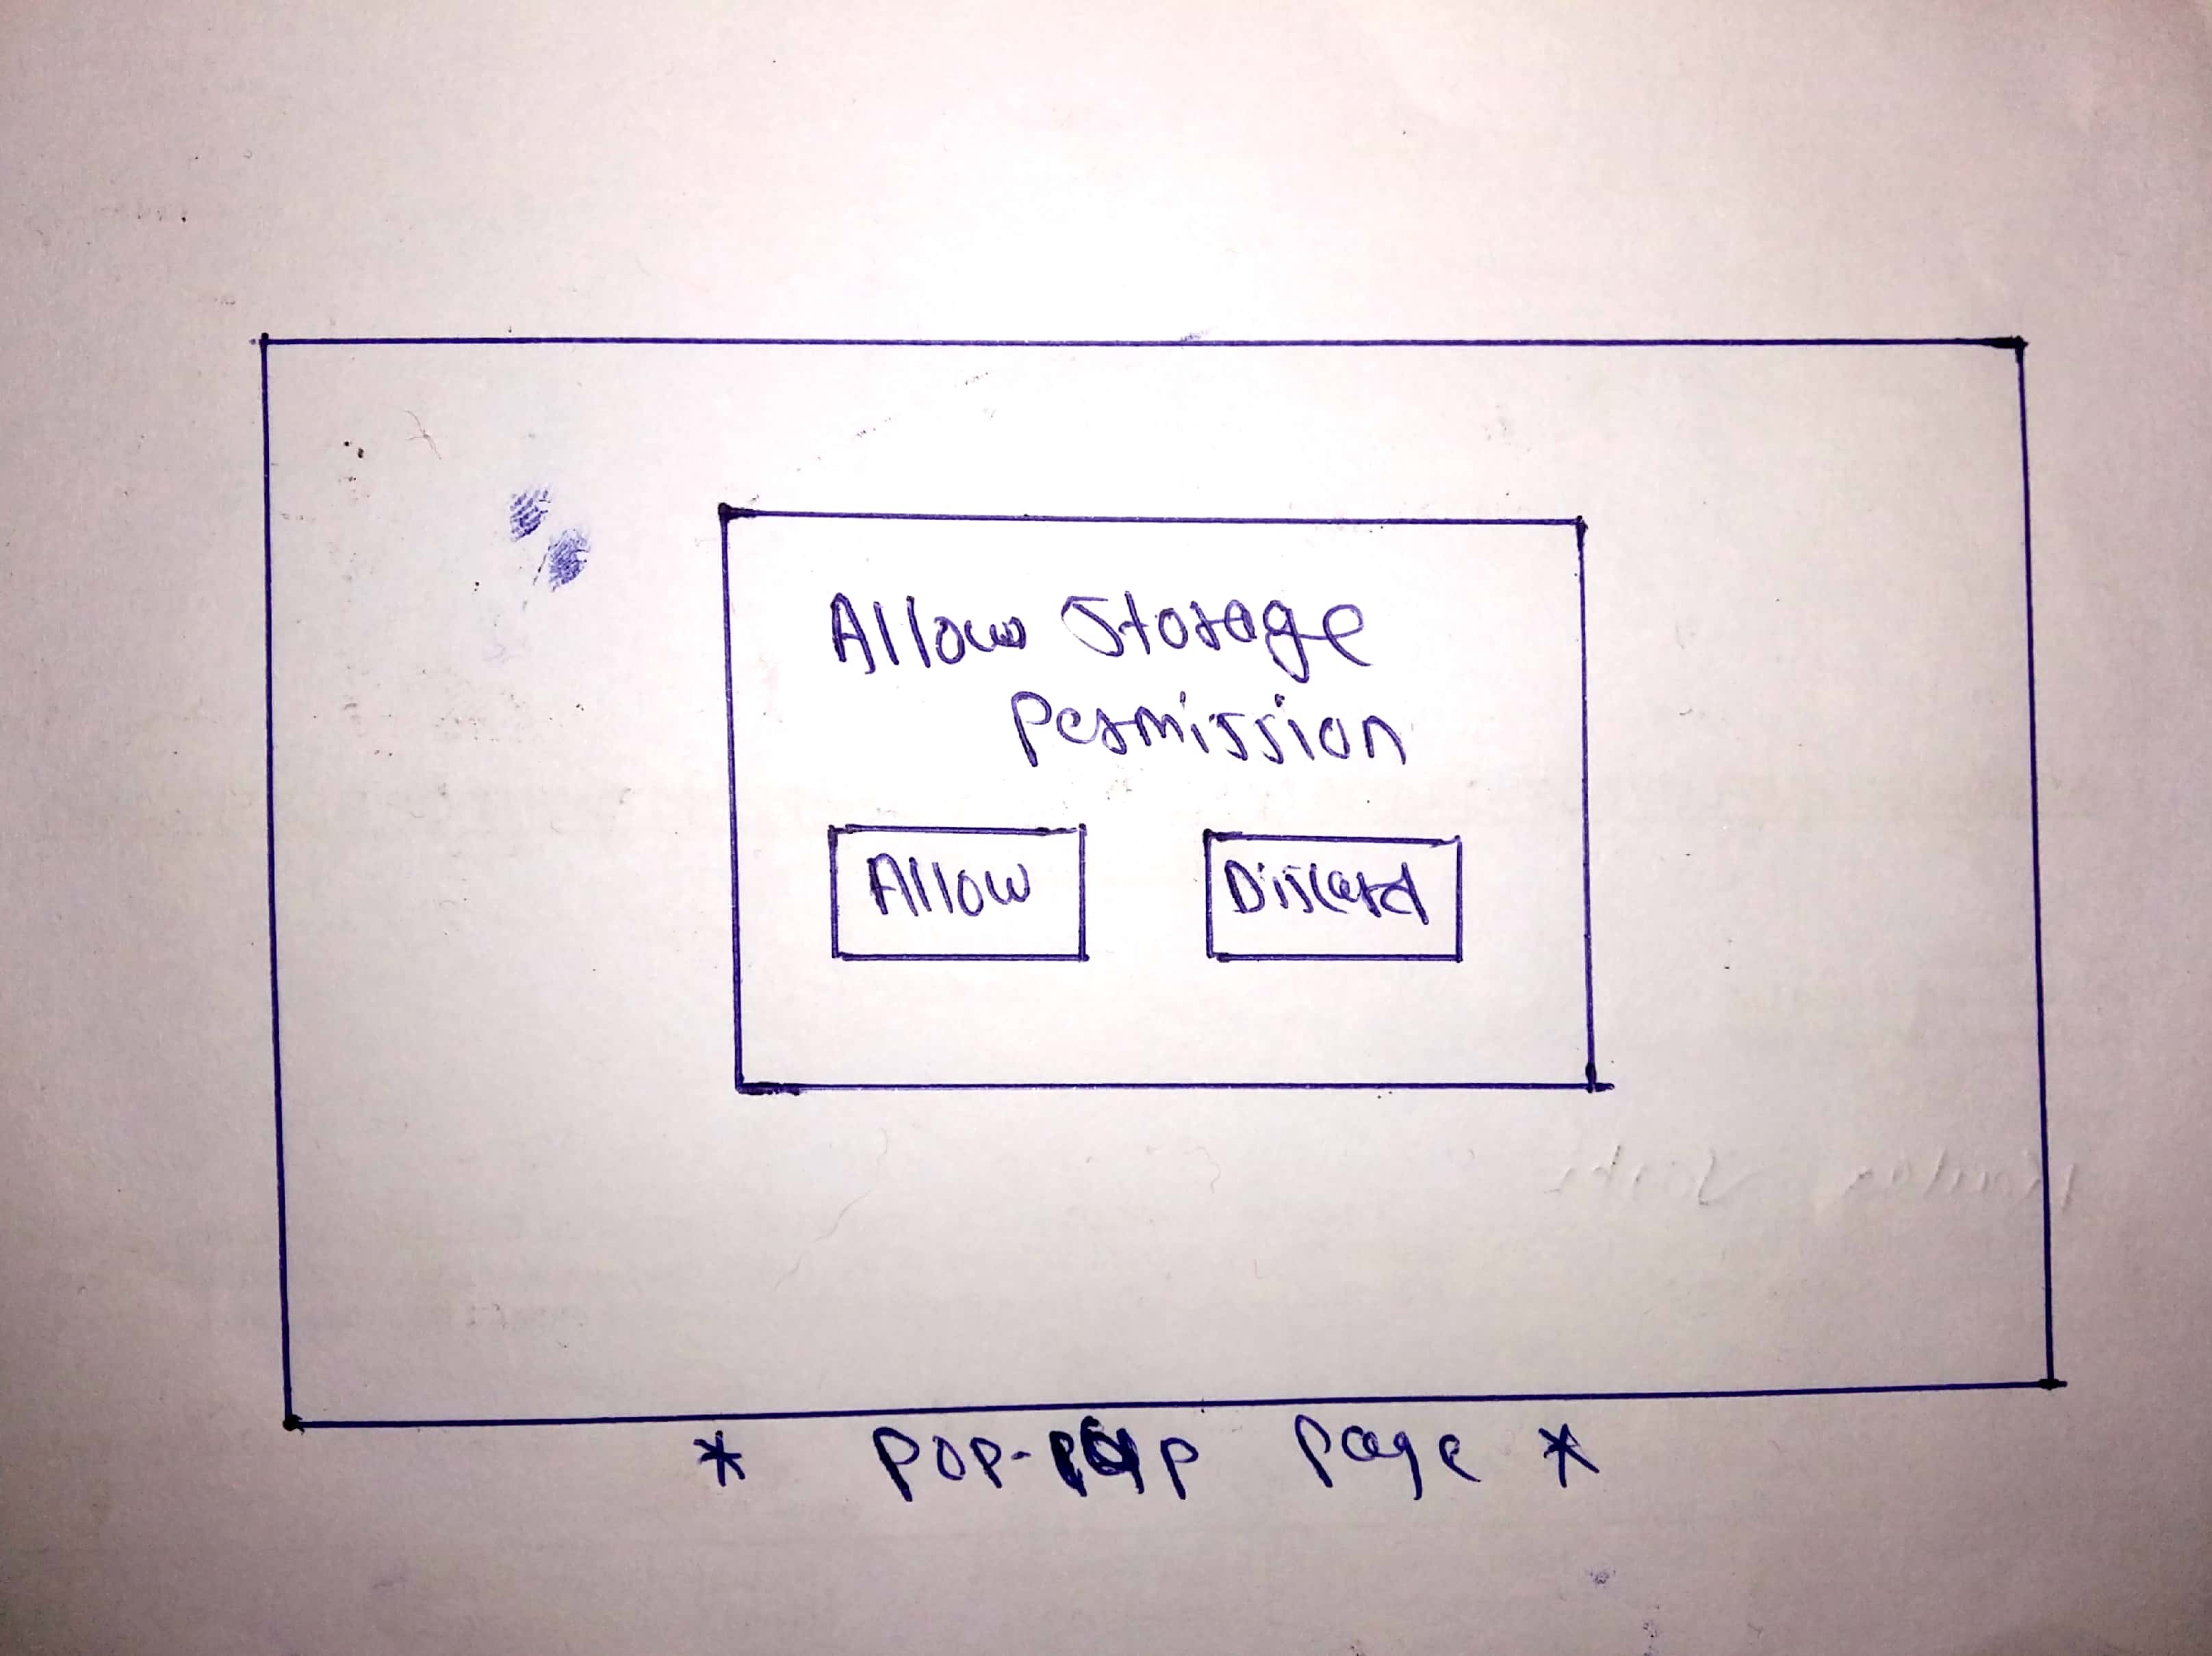 Allow Storage
Permission
Allow
Discard
* Pop-Up Page *